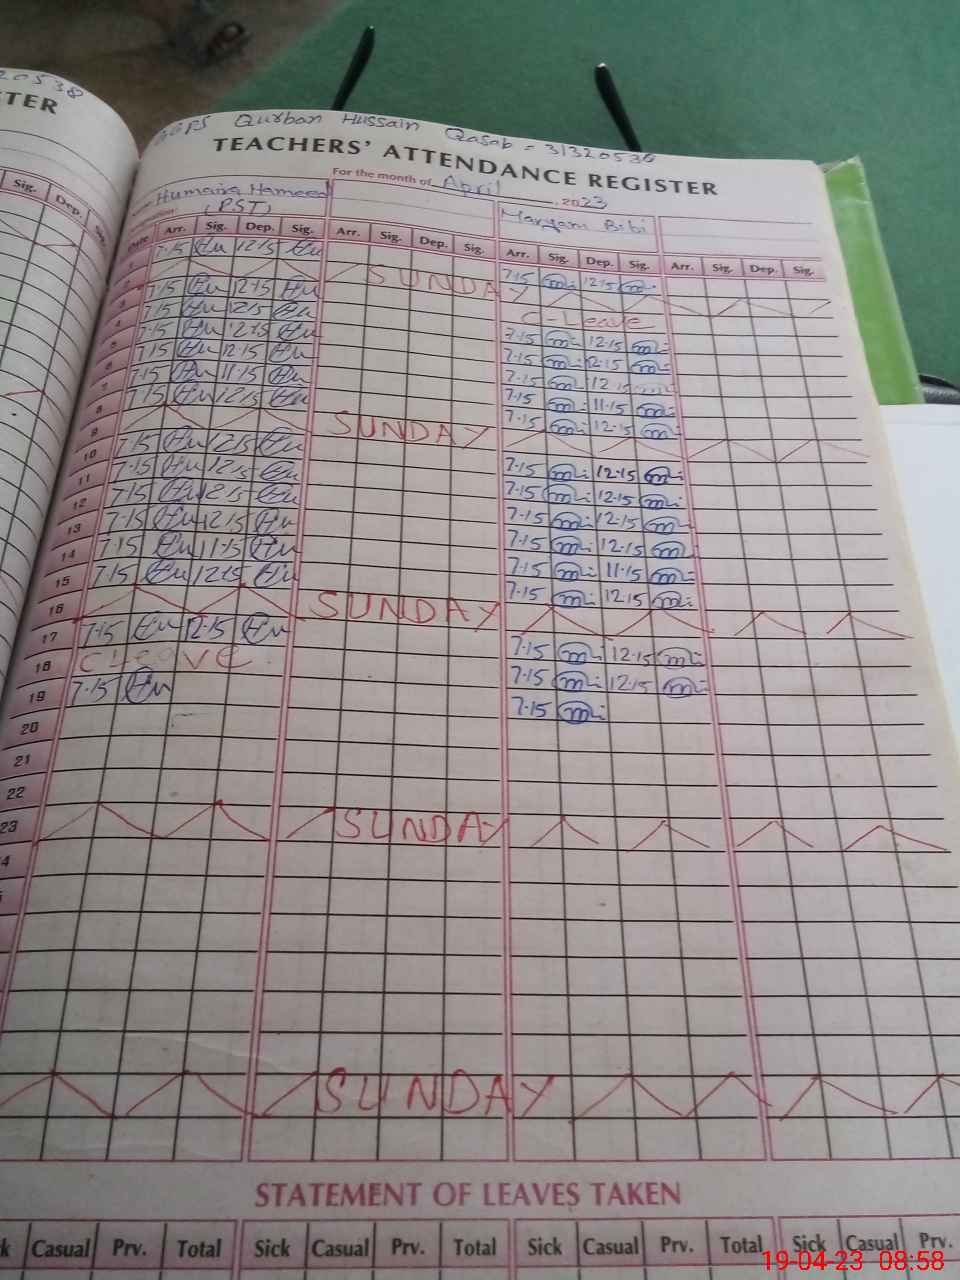 20538
STER
Sig. Dep.
GGPS Qurban Hussain Qasab = 31320538
TEACHERS' ATTENDANCE REGISTER
For the month of April, 2023
Humaira Hameed Maryam Bibi
(PST)
Date Arr. Sig. Dep. Sig. Arr. Sig. Dep. Sig. Arr. Sig. Dep. Sig. Arr. Sig. Dep. Sig.
1 7.15 Hu 12.15 Hu 7.15 m 12.15 m
2 SUNDAY
3 7.15 Hu 12.15 Hu C-Leave
4 7.15 Hu 12.15 Hu 7.15 m 12.15 m
5 7.15 Hu 12.15 Hu 7.15 m 12.15 m
6 7.15 Hu 12.15 Hu 7.15 m 12.15 m
7 7.15 Hu 11.15 Hu 7.15 m 11.15 m
8 7.15 Hu 12.15 Hu 7.15 m 12.15 m
9 SUNDAY
10 7.15 Hu 12.15 Hu 7.15 m 12.15 m
11 7.15 Hu 12.15 Hu 7.15 m 12.15 m
12 7.15 Hu 12.15 Hu 7.15 m 12.15 m
13 7.15 Hu 12.15 Hu 7.15 m 12.15 m
14 7.15 Hu 11.15 Hu 7.15 m 11.15 m
15 7.15 Hu 12.15 Hu 7.15 m 12.15 m
16 SUNDAY
17 7.15 Hu 12.15 Hu 7.15 m 12.15 m
18 C Leave 7.15 m 12.15 m
19 7.15 Hu 7.15 m
20
21
22
23 SUNDAY
4
SUNDAY
STATEMENT OF LEAVES TAKEN
k Casual Prv. Total Sick Casual Prv. Total Sick Casual Prv. Total Sick Casual Prv.
19-04-23 08:58